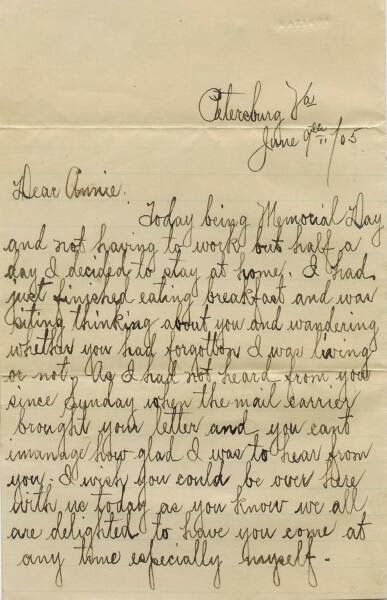 Petersburg Va
June 9th /05
Dear Annie.
Today being Memorial Day
and not having to work but half a
day I decided to stay at home. I had
just finished eating breakfast and was
siting thinking about you and wandering
whether you had forgotton I was living
or not. As I had not heard from you
since Sunday when the mail carrier
brought your letter and you cant
imanage how glad I was to hear from
you. I wish you could be over here
with us today as you know we all
are delighted to have you come at
any time especially myself.